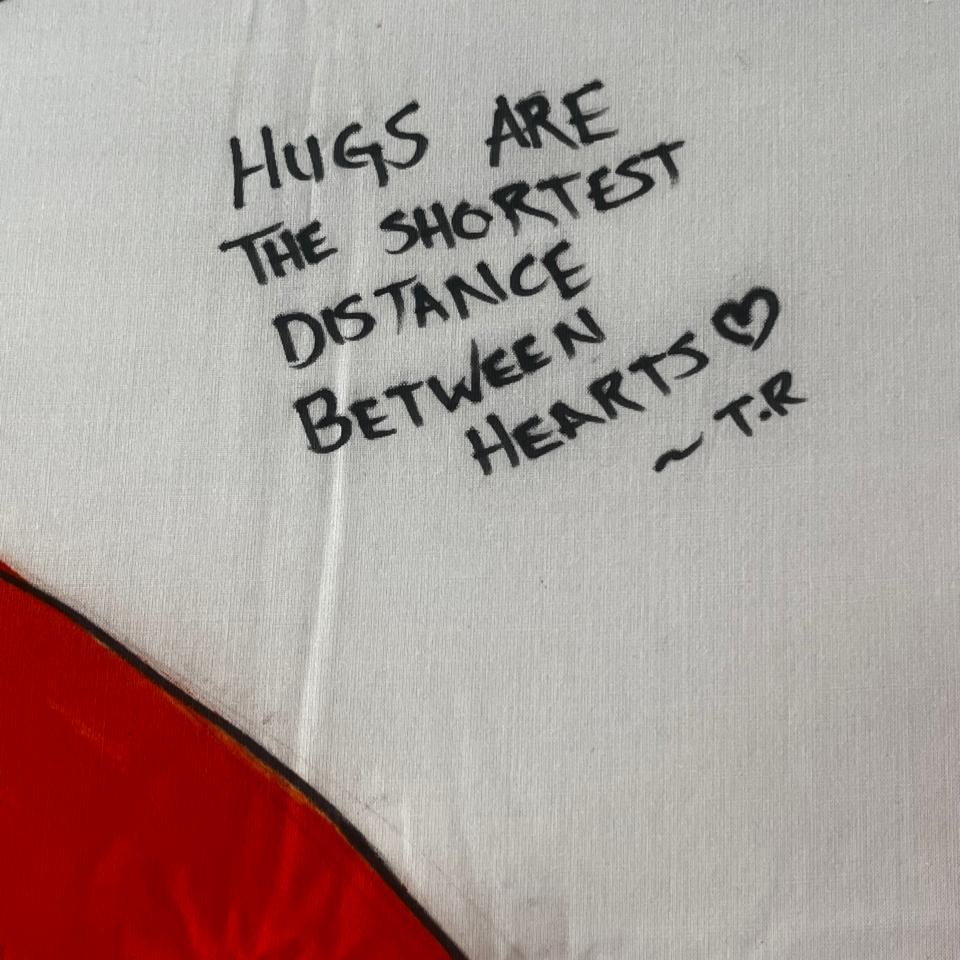 HUGS ARE
THE SHORTEST
DISTANCE
BETWEEN
HEARTS ♡
~ T.R